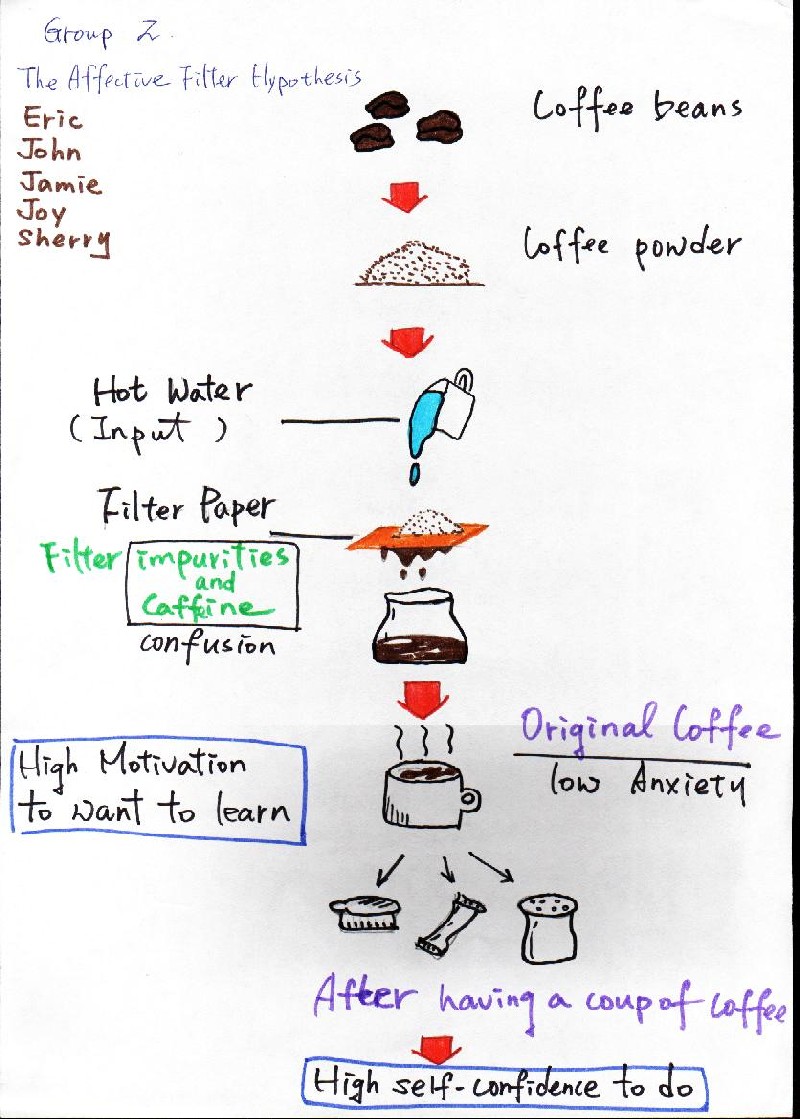 Group 2.
The Affective Filter Hypothesis
Eric
John
Jamie
Joy
Sherry
Coffee beans
Coffee powder
Hot Water
(Input)
Filter Paper
Filter impurities
and
Caffeine
confusion
Original Coffee
low Anxiety
High Motivation
to want to learn
After having a coup of coffee
High self-confidence to do